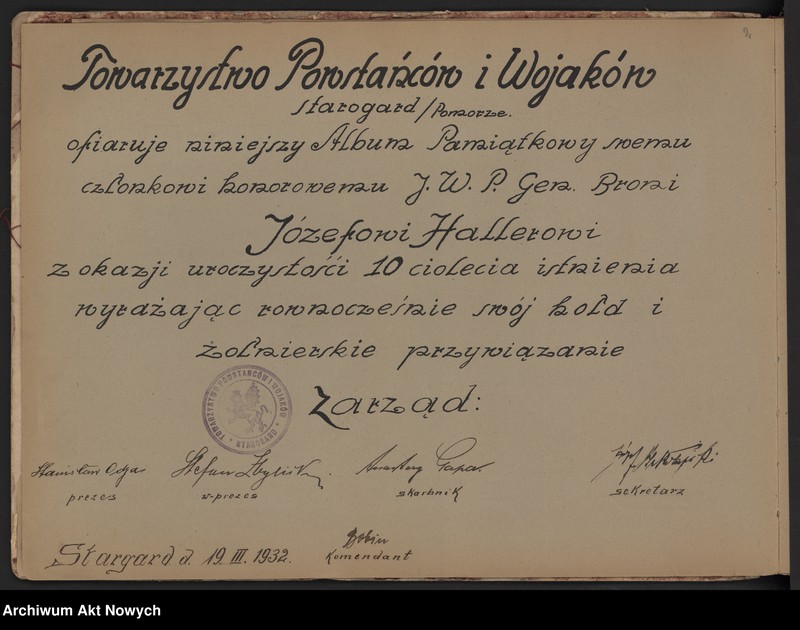 Towarzystwo Powstańców i Wojaków
Starogard / Pomorze.
ofiaruje niniejszy Album Pamiątkowy swemu
członkowi honorowemu J. W. P. Gen. Broni
Józefowi Hallerowi
z okazji uroczystości 10 ciolecia istnienia
wyrażając rownocześnie swój hołd i
żołnierskie przywiązanie
Zarząd:
TOWARZYSTWO POWSTAŃCÓW I WOJAKÓW
STAROGARD
Stanisław
Stefan
prezes
w-prezes
skarbnik
sekretarz
Komendant
Stargard d. 19. III. 1932.
Archiwum Akt Nowych